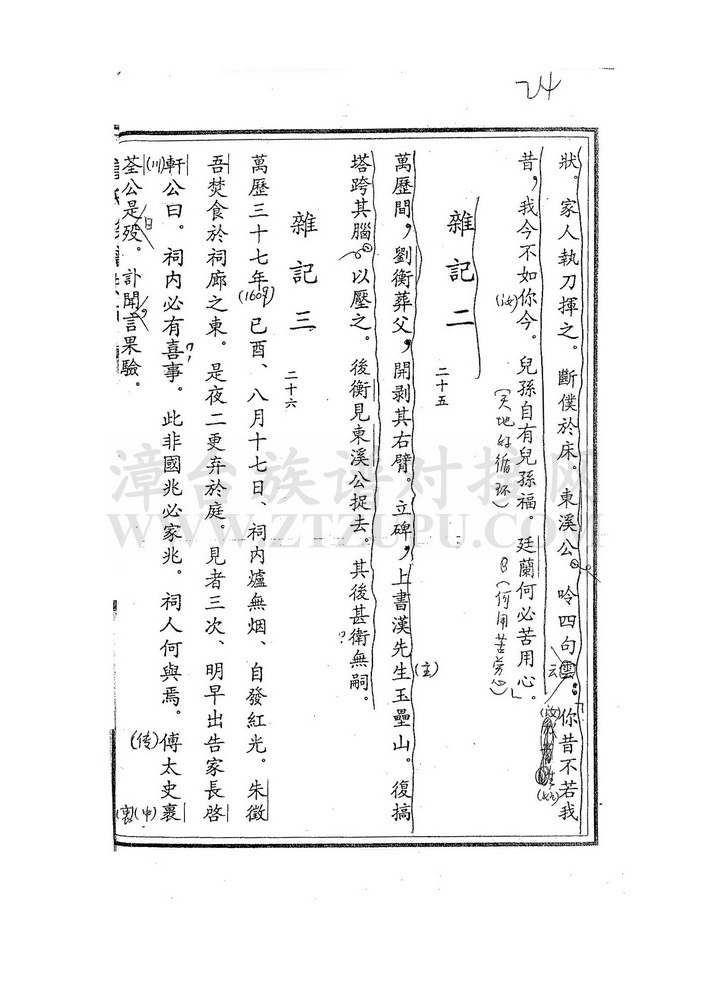 24
狀。家人執刀揮之。斷僕於床。東溪公。呤四句雲：「你昔不若我
云
昔，我今不如你今。兒孫自有兒孫福 廷蘭何必苦用心。」
(汝)
(天地好循环)
(何用苦劳心)
雜記二
二十五
萬歷間，劉衡葬父，開剥其右臂。立碑，上書漢先生玉壘山。復搞
(主)
塔跨其腦。以壓之。後衡見東溪公捉去。其後甚衛無嗣。
?
雜記三
二十六
萬歷三十七年己酉、八月十七日、祠內爐無烟、自發紅光。朱徵
(1609)
吾焚食於祠廊之東。是夜二更弃於庭。見者三次、明早出告家長啓
軒公曰。祠內必有喜事。此非國兆必家兆。祠人何與焉。傅太史裏
(川)
?
(传)
(衷)
(中)
荃公是殁。訃聞言果驗。
日
漳台族谱对接网
WWW.ZTZUPU.COM